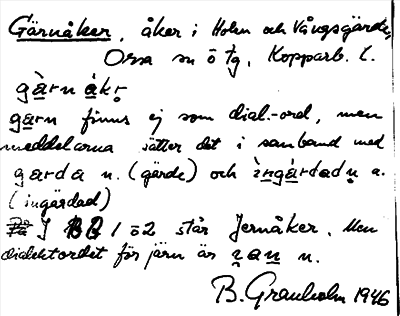 Gärnåker, åker i Holen och Vångsgärde,
Orsa sn ö tg, Kopparb. l.
gàrn ákr̥
garn finns ej som dial.-ord, men
meddelarna sätter det i samband med
garda n. (gärde) och ìngárdadn̥ a.
(ingärdad)
På J BQ 1 ö2 står Jernåker. Men
dialektordet för järn är
B. Granholm 1946